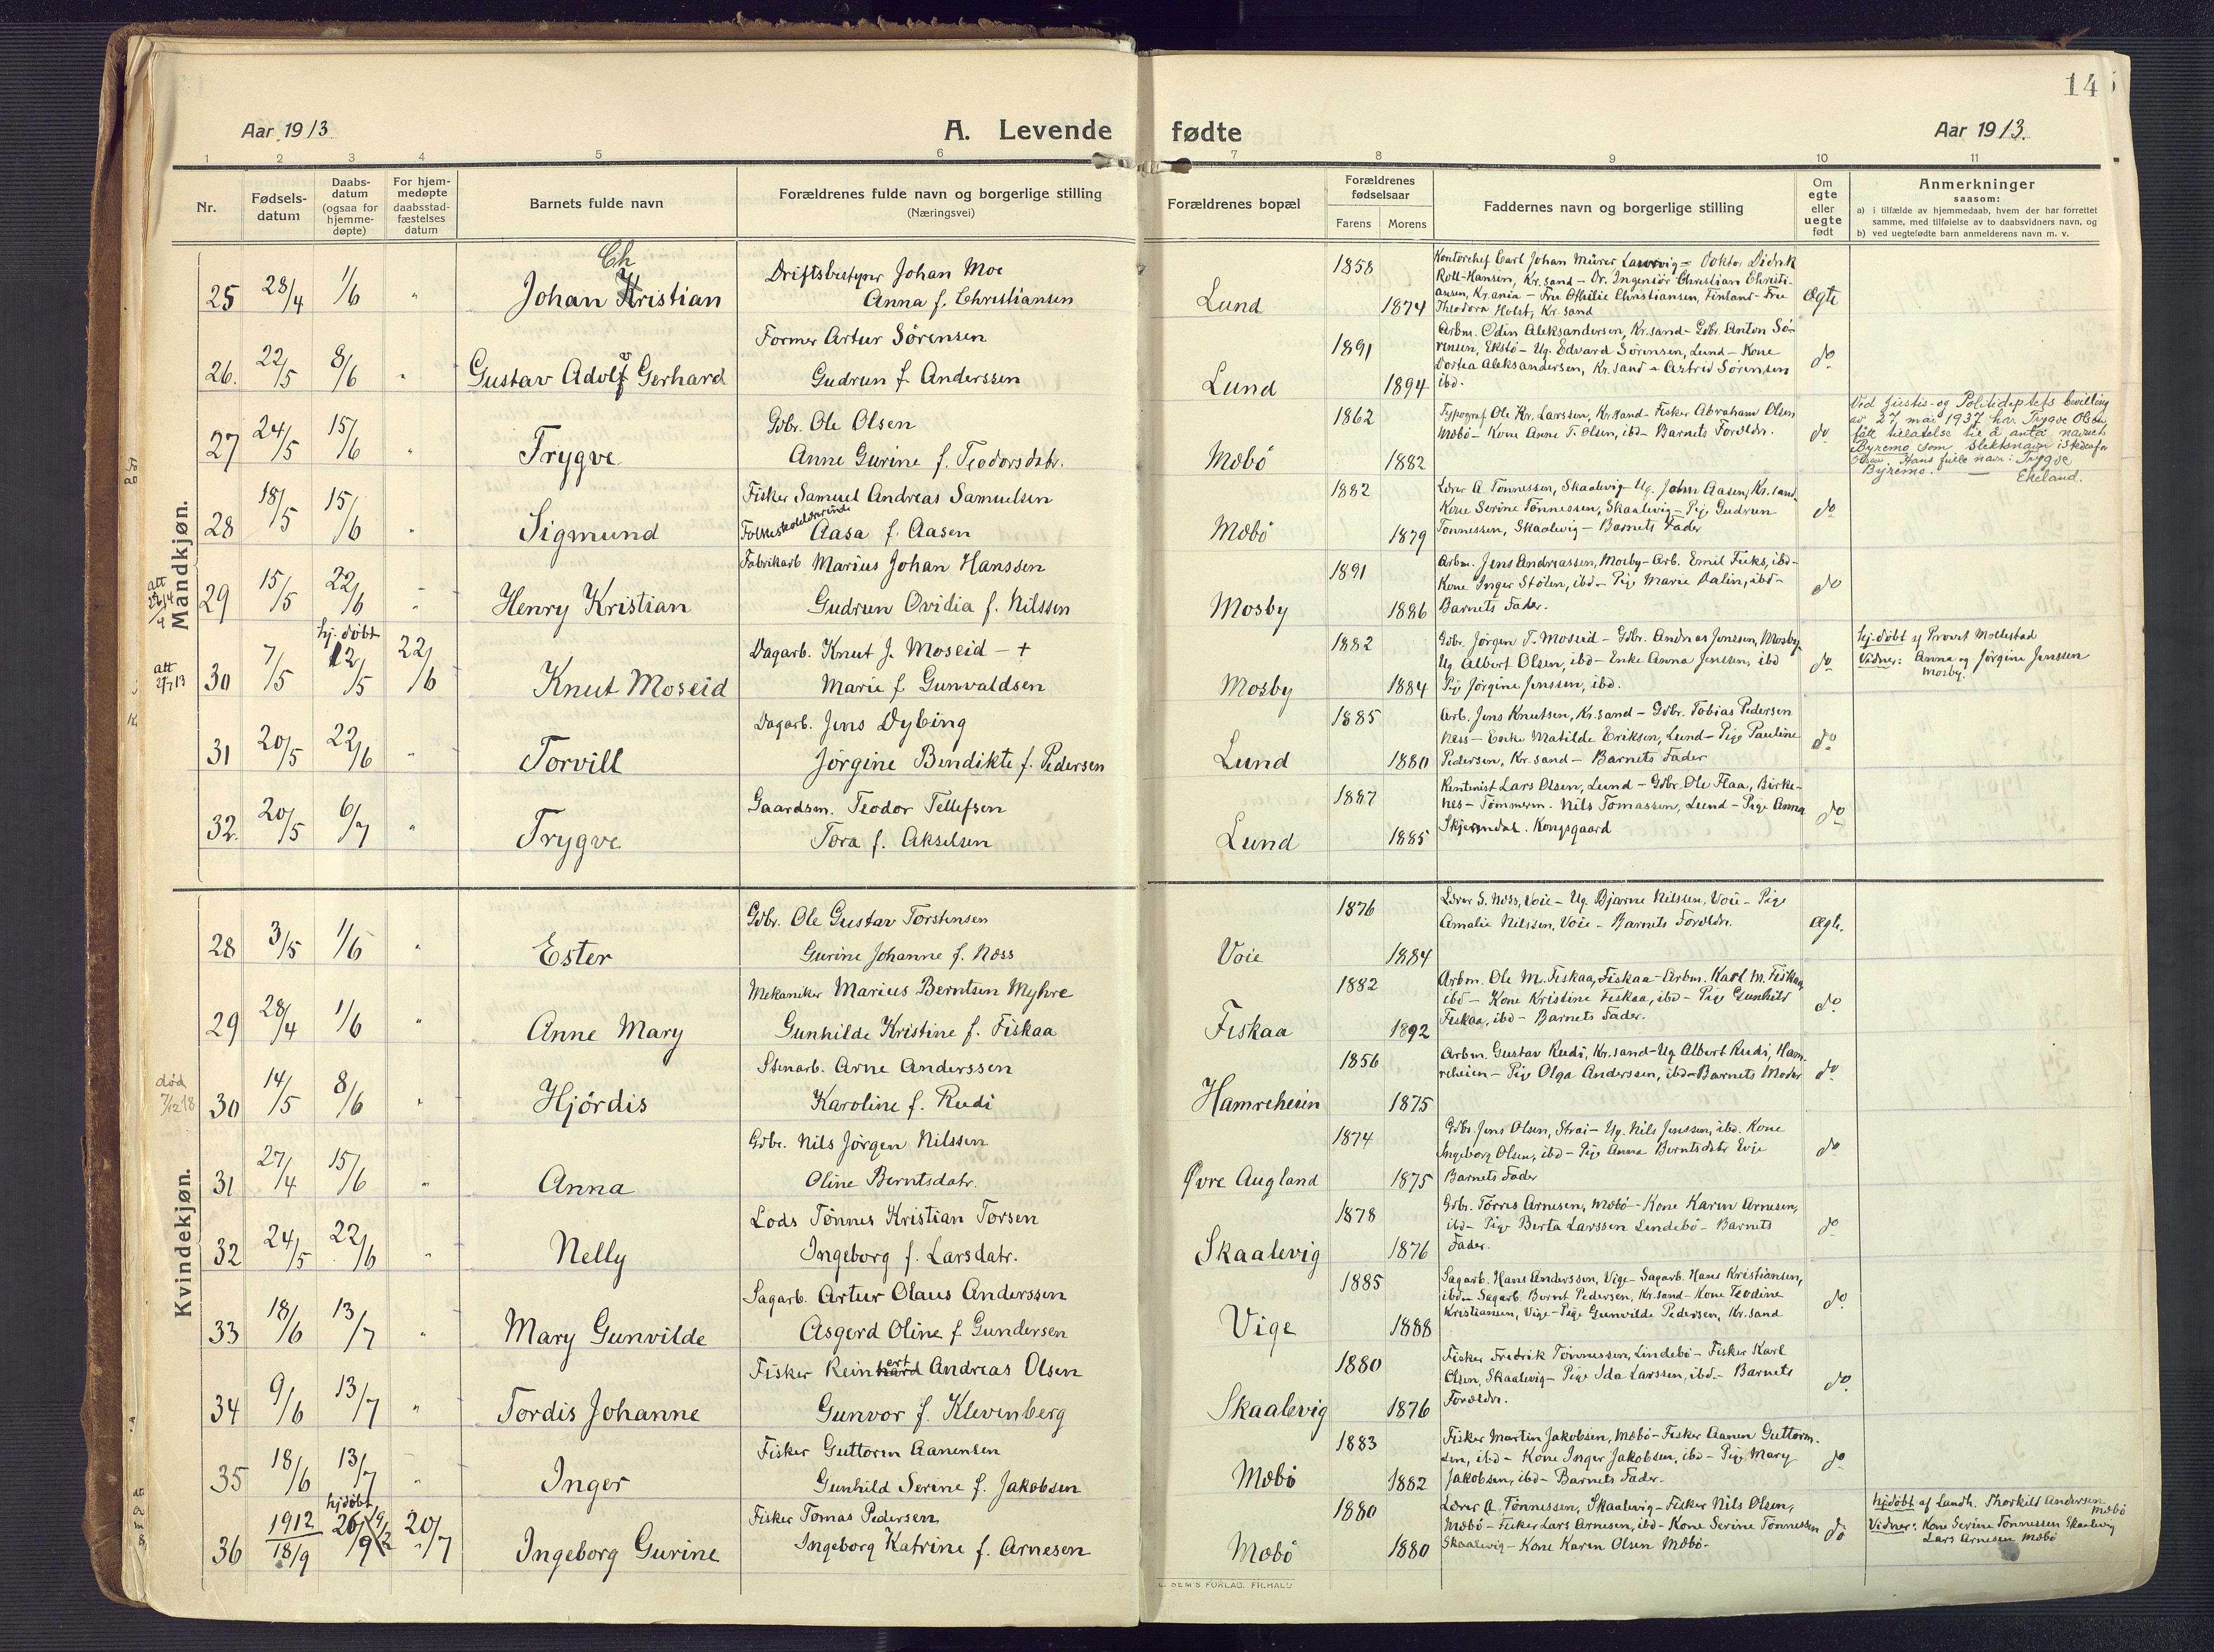 14
Aar 1913
A. Levende
fødte
Aar 1913.
1 2 3 4 5 6 7 8 9 10 11
Nr.
Fødsels-
datum
Daabs-
datum
(ogsaa for
hjemme-
døpte)
For hjem-
medøpte
daabsstad-
fæstelses
datum
Barnets fulde navn
Forældrenes fulde navn og borgerlige stilling
(Næringsvei)
Forældrenes bopæl
Forældrenes
fødselsaar
Farens Morens
Faddernes navn og borgerlige stilling
Om
egte
eller
uegte
født
Anmerkninger
saasom:
a) i tilfælde av hjemmedaab, hvem der har forrettet
samme, med tilføielse av to daabsvidners navn, og
b) ved uegtefødte barn anmelderens navn m. v.
Mandkjøn.
25 28/4 1/6 "
Ch
Johan Kristian
Driftsbestyrer Johan Moe
Anna f. Christiansen
Lund
1858
1874
Kontorchef Carl Johan Mürer Laurvig - Doktor Didrik
Roll-Hansen, Kr.sand - Dr. Ingeniör Christian Christi-
ansen, Kr.ania - Fru Othilie Christiansen, Finland - Fru
Theodora Holst, Kr.sand
Ægte
26. 22/5 8/6 "
Gustav Adolf Gerhard
Former Artur Sørensen
Gudrun f. Anderssen
Lund
1891
1894
Arbm. Odin Aleksandersen, Kr.sand - Gdbr. Anton Sø-
rensen, Ekstø - Ug. Edvard Sørensen, Lund - Kone
Dortea Aleksandersen, Kr.sand - Astrid Sørensen
ibd.
do
27 24/5 15/6 "
Trygve
Gdbr. Ole Olsen
Anne Gurine f. Teodorsdatr.
Mæbö
1862
1882
Typograf Ole Kr. Larssen, Kr.sand - Fisker Abraham Olsen
Mæbö - Kone Anne T. Olsen, ibd - Barnets Forældr.
do
Ved Justis- og Politideptets bevilling
av 27 mai 1937 har Trygve Olsen
fått tillatelse til å anta navnet
Byremo som slektsnavn istedenfor
Olsen. Hans fulle navn: Trygve
Byremo. — Ekeland.
28 18/5 15/6 "
Sigmund
Fisker Samuel Andreas Samuelsen
Folkeskolelærerinde Aasa f. Aasen
Mæbö
1882
1879
Lærer A. Tønnessen, Skaalevig - Ug. John Aasen, Kr.sand.
Kone Serine Tønnessen, Skaalevig - Pig. Gudrun
Tønnessen, Skaalevig - Barnets Fader
do
att
22/4 14
29 15/5 22/6 "
Henry Kristian
Fabrikarb Marius Johan Hanssen
Gudrun Ovidia f. Nilssen
Mosby
1891
1886
Arbm. Jens Andreassen, Mosby - Arb. Emil Fuks, ibd -
Kone Inger Stølen, ibd - Pig. Marie Dalin, ibd -
Barnets Fader.
do
att
27/7 13
30 7/5 hj. døbt 12/5 22/6
Knut Moseid
Dagarb. Knut J. Moseid - +
Marie f. Gunvaldsen
Mosby
1882
1884
Gdbr. Jørgen T. Moseid - Gdbr. Andreas Jenssen, Mosby
Ug. Albert Olsen, ibd - Enke Anna Jenssen, ibd
Pig. Jørgine Jenssen, ibd.
do
hj.døbt af Provst Mollestad
Vidner: Anna og Jørgine Jenssen
Mosby.
31 20/5 22/6 "
Torvill
Dagarb. Jens Dybing
Jørgine Bendikte f. Pedersen
Lund
1885
1880
Arb. Jens Knutsen, Kr.sand - Gdbr. Tobias Pedersen
Ness - Enke Matilde Eriksen, Lund - Pige Pauline
Pedersen, Kr.sand - Barnets Fader
do
32. 20/5 6/7 "
Trygve
Gaardsm. Teodor Tellefsen
Tora f. Akselsen
Lund
1887
1885
Rentenist Lars Olsen, Lund - Gdbr. Ole Flaa, Birke-
nes - Tømmerm. Nils Tomassen, Lund - Pige Anna
Skjerndal. Kongsgaard
do
Kvindekjøn.
28 3/5 1/6 "
Ester
Gdbr. Ole Gustav Torstensen
Gurine Johanne f. Næss
Voie
1876
1884
Lærer S. Næss, Voie - Ug. Bjarne Nilssen, Voie - Pige
Amalie Nilssen, Voie - Barnets Forældr.
Ægte.
29 28/4 1/6 "
Anne Mary
Mekaniker Marius Berntsen Myhre
Gunhilde Kristine f. Fiskaa
Fiskaa
1882
1892
Arbm. Ole M. Fiskaa, Fiskaa - Arbm. Karl M. Fiskaa,
ibd - Kone Kristine Fiskaa, ibd - Pige Gunhild
Fiskaa, ibd - Barnets Fader.
do
død
7/12 18
30 14/5 8/6 "
Hjördis
Stenarb. Arne Anderssen
Karoline f. Rudi
Hamreheien
1856
1875
Arbm. Gustav Rudi, Kr.sand - Ug. Albert Rudi, Ham-
reheien - Pige Olga Anderssen, ibd - Barnets Moder
do
31 27/4 15/6 "
Anna
Gdbr. Nils Jørgen Nilssen
Oline Berntsdatr.
Øvre Augland
1874
1875
Gdbr. Jens Olsen, Strai - Ug. Nils Jenssen, ibd. Kone
Ingeborg Olsen, ibd - Pige Anna Berntsdatr Evje
Barnets Fader
do
32 24/5 22/6 "
Nelly
Lods Tønnes Kristian Torsen
Ingeborg f. Larsdatr.
Skaalevig
1878
1876
Gdbr. Tørres Arnesen, Mæbö - Kone Karen Arnesen,
ibd - Pige Berta Larssen Lindebö - Barnets
Fader.
do
33 18/6 13/7 "
Mary Gunvilde
Sagarb. Artur Olaus Anderssen
Asgerd Oline f. Gundersen
Vige
1885
1888
Sagarb. Hans Anderssen, Vige - Sagarb. Hans Kristiansen,
ibd - Sagarb. Bernt Pedersen, Kr.sand - Kone Teodine
Kristiansen, Vige - Pige Gunvilde Pedersen, Kr.sand
do
34 9/6 13/7 "
Tordis Johanne
ert
Fisker Reinhard Andreas Olsen
Gunvor f. Klevenberg
Skaalevig
1880
1876
Fisker Fredrik Tønnessen, Lindebö - Fisker Karl
Olsen, Skaalevig - Pige Ida Larssen, ibd. - Barnets
Forældr.
do
35 18/6 13/7 "
Inger
Fisker Guttorm Aanensen
Gunhild Serine f. Jakobsen
Mæbö
1883
1882
Fisker Martin Jakobsen, Mæbö - Fisker Aanen Guttorm-
sen, ibd - Kone Inger Jakobsen, ibd - Pig. Mary
Jakobsen, ibd - Barnets Fader.
do
36 1912 18/9 hjdøbt 26/9 20/7
Ingeborg Gurine
Fisker Tomas Pedersen
Ingeborg Katrine f. Arnesen
Mæbö
1880
1880
Lærer A. Tønnessen, Skaalevig - Fisker Nils Olsen,
Mæbö - Fisker Lars Arnesen, ibd - Kone Serine Tønnessen
Skaalevig - Kone Karen Olsen Mæbö -
do
hjdøbt af Landh. Thorkild Andersen
Mæbö
Vidner: Kone Serine Tønnessen Skaalevig
Lars Arnesen Mæbö
SEM'S FORLAG. FR.HALD